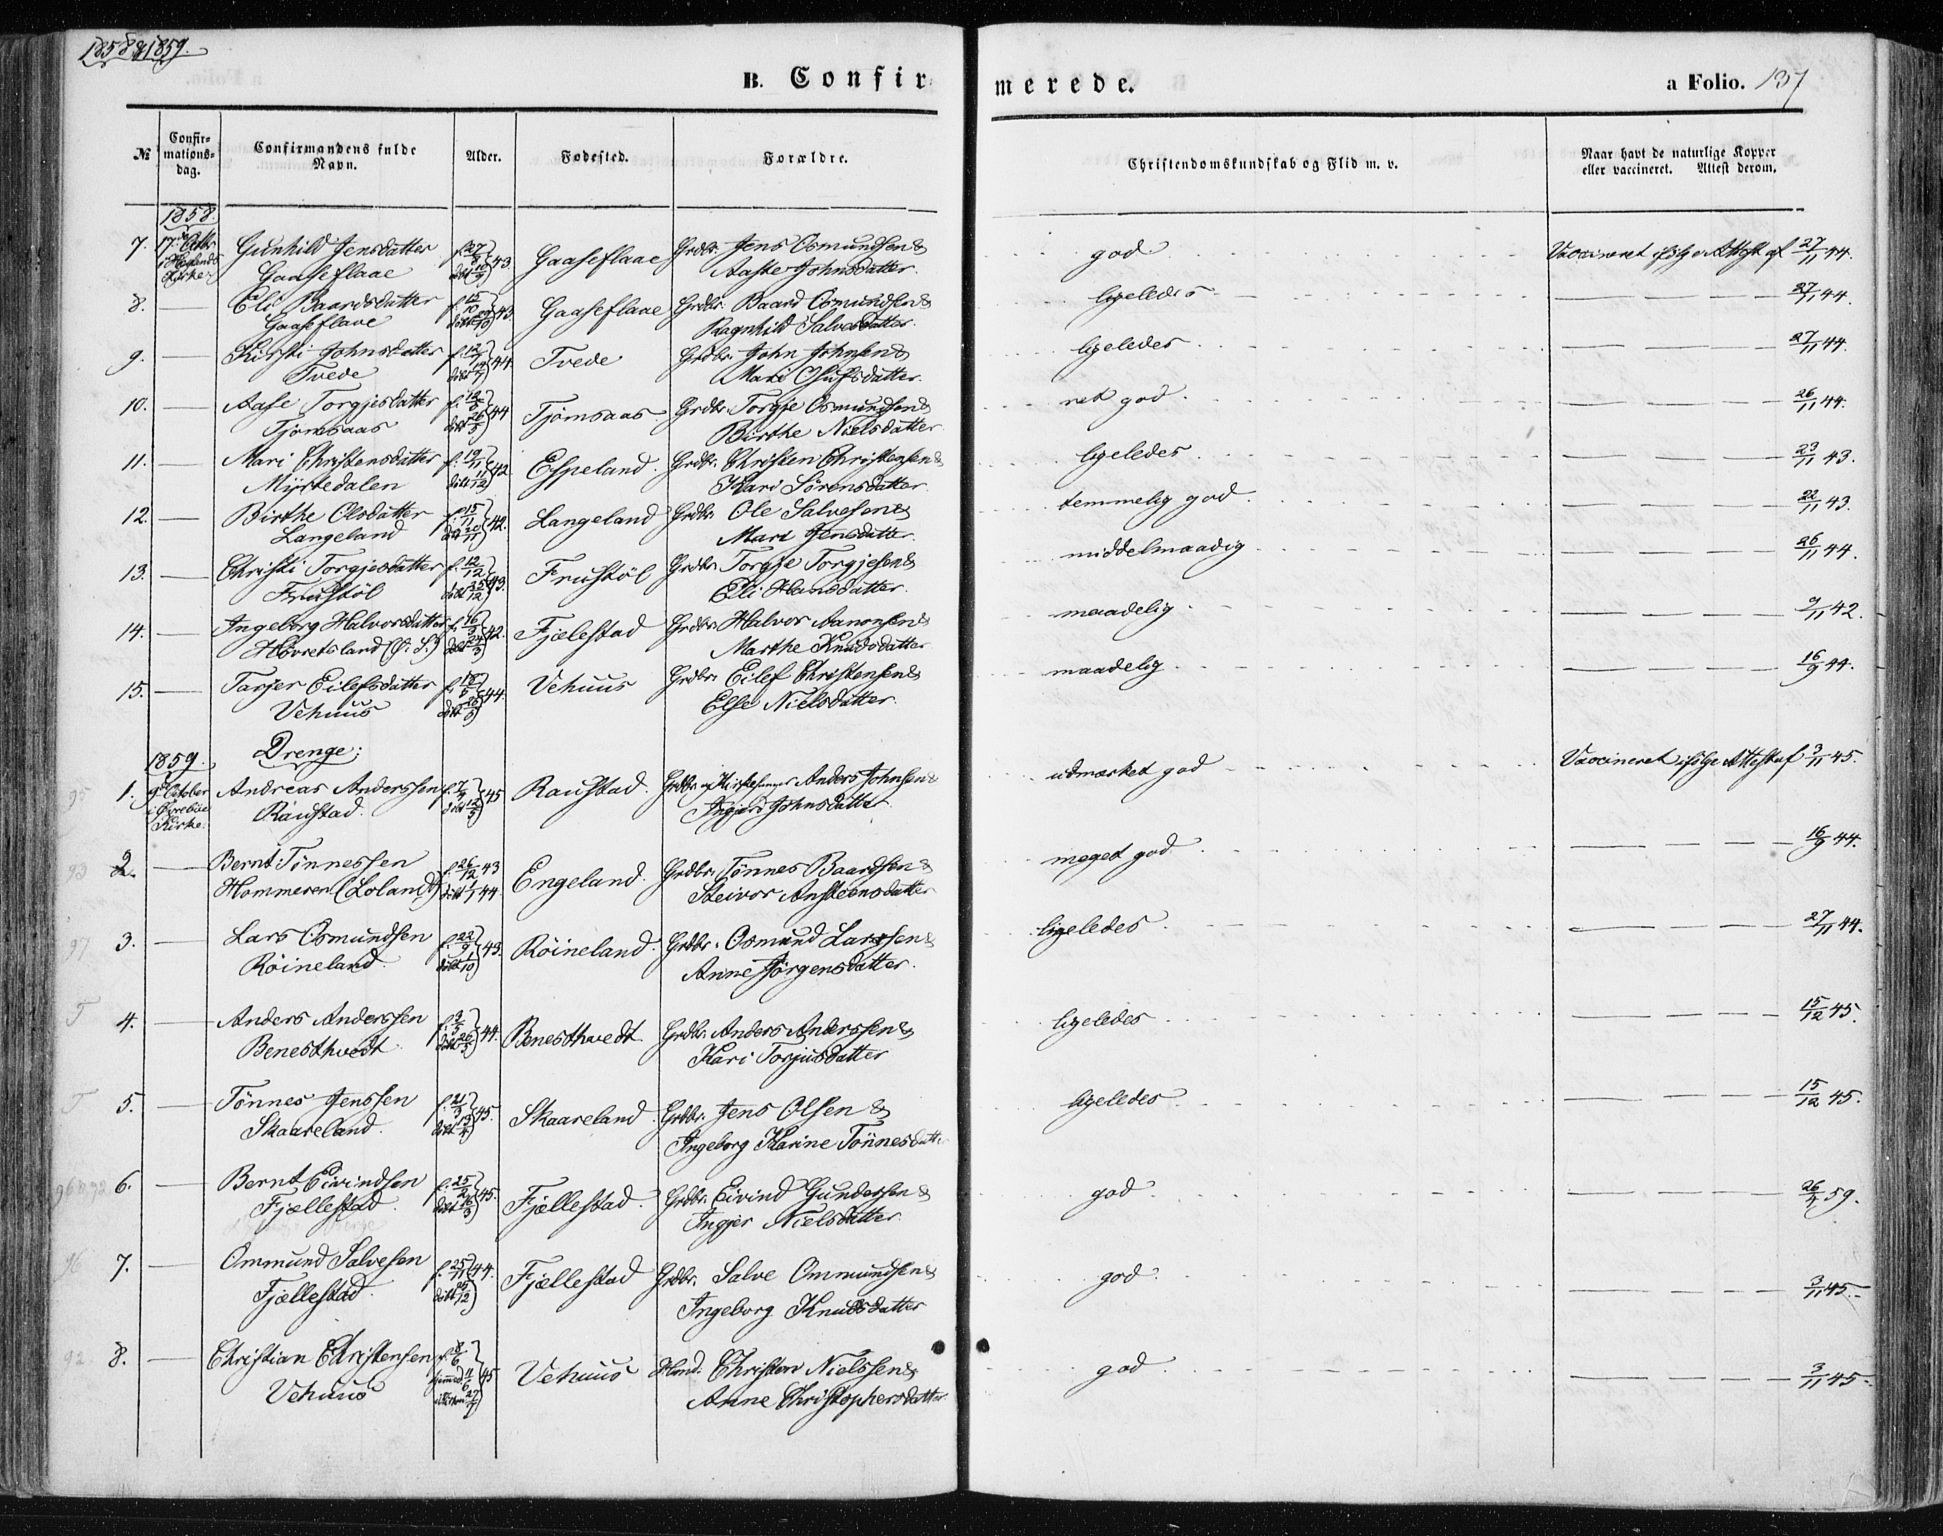 1858 & 1859.
B. Confirmerede.
a Folio. 137
№
Confirmations-dag.
Confirmandens fulde Navn.
Alder.
Fødested.
Forældre.
Christendomskundskab og Flid m. v.
Naar havt de naturlige Kopper eller vaccineret. Attest derom.
1858.
7. 17. Octbr Gunhild Jensdatter Gaaseflaae Gaaseflaae Grdbr. Jens Osmundsen & Aaste Johnsdatter god Vaccineret ifølge Attest af 27/11 44.
8. — Eli Baardsdatter Gaaseflaae Gaaseflaae Grdbr. Baard Osmundsen & Ragnhild Salvesdatter. ligeledes 27/11 44.
9. — Kirsti Johnsdatter Tvede Tvede Grdbr. John Johnsen & Mari Olufsdatter. ligeledes 27/11 44.
10. — Aase Torgjesdatter Tjomsaas Tjomsaas Grdbr. Torgje Osmundsen & Birthe Nielsdatter ret god 26/11 44.
11. — Mari Christensdatter Myrtedalen Espeland Grdbr. Christen Christensen & Kari Sørensdatter ligeledes. 23/11 43.
12. — Birthe Olsdatter Langeland f. 15/11 42. Langeland Grdbr. Ole Salvesen & Mari Jensdatter. temmelig god 22/11 43.
13. — Christi Torgjesdatter Frustöl f. 12/12 43. Frustöl Grdbr. Torgje Torgjesen & Eli Hansdatter. middelmaadig 26/11 44.
14. — Ingeborg Halvorsdatter Hövretsland (Ö. S.) Fjælestad Grdbr. Halvor Aanonsen & Marthe Knudsdatter maadelig 9/11 42.
15. — Tarjer Eilefsdatter Vehuus f. 18/5 44. Vehuus Grdbr. Eilef Christensen & Else Nielsdatter. maadelig 16/9 44.
1859. Drenge:
1. 9 October i Kirke. Andreas Anderssen Raustad. Raustad. Grdbr. og Anders Johnsen & Johnsdatter udmærket god Vaccineret ifølge Attest af 3/11 45.
2. — Bernt Tönnessen Hommeren (Loland) f. 26/12 43 døbt 1/1 44 Engeland. Grdbr. Tönnes Baardsen & Steivor Ansteensdatter meget god 16/9 44.
3. — Lars Osmundsen Röineland. f. 22/9 døbt 1/10 43. Röineland. Grdbr. Osmund Larssen & Anne Jörgensdatter. ligeledes. 27/11 44.
4. — Anders Anderssen Benesthvedt. Benesthvedt. Grdbr. Anders Anderssen & Kari Torjusdatter ligeledes 15/12 45.
5. — Tönnes Jenssen Skaareland. f. 21/3 døbt 13/4 45. Skaareland. Grdbr. Jens Olsen & Ingeborg Karine Tönnesdatter ligeledes 15/12 45.
6. — Bernt Eivindsen Fjællestad. f. 25/2 døbt 16/3 45. Fjællestad. Grdbr. Eivind Gundersen & Ingjer Nielsdatter. god. 26/4 59.
7. — Ommund Salvesen Fjællestad. f. 25/11 44. Fjællestad Grdbr. Salve Ommundsen & Ingeborg Knudsdatter god. 3/11 45.
8. — Christian Christensen Vehuus f. 8/6 45 Vehuus Christen Nielssen & Anne Christophersdatter god 3/11 45